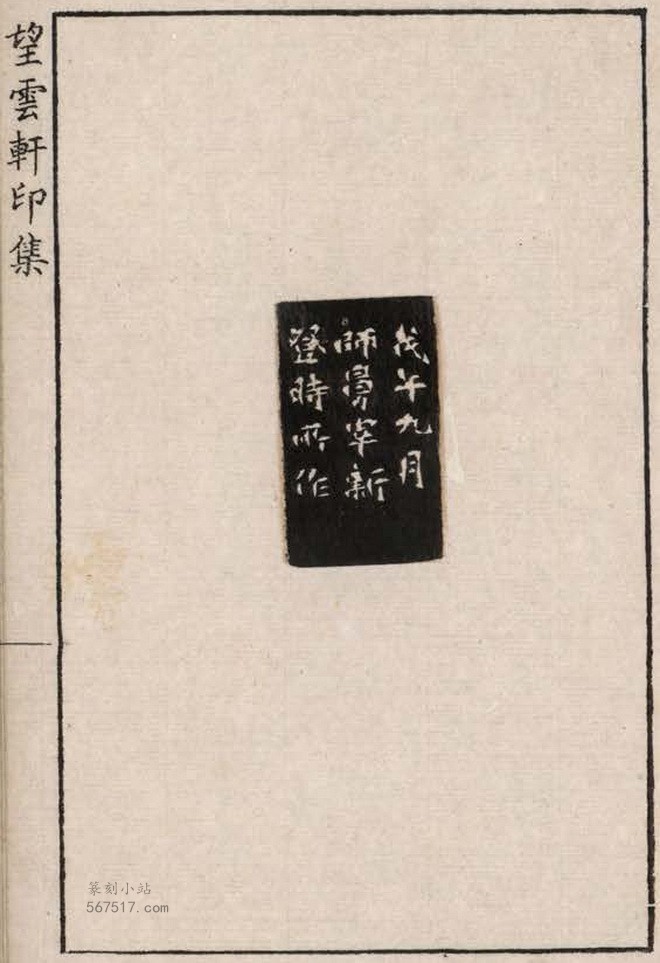 望雲軒印集
戊午九月
師宰新
登時所作
篆刻小站
567517.com